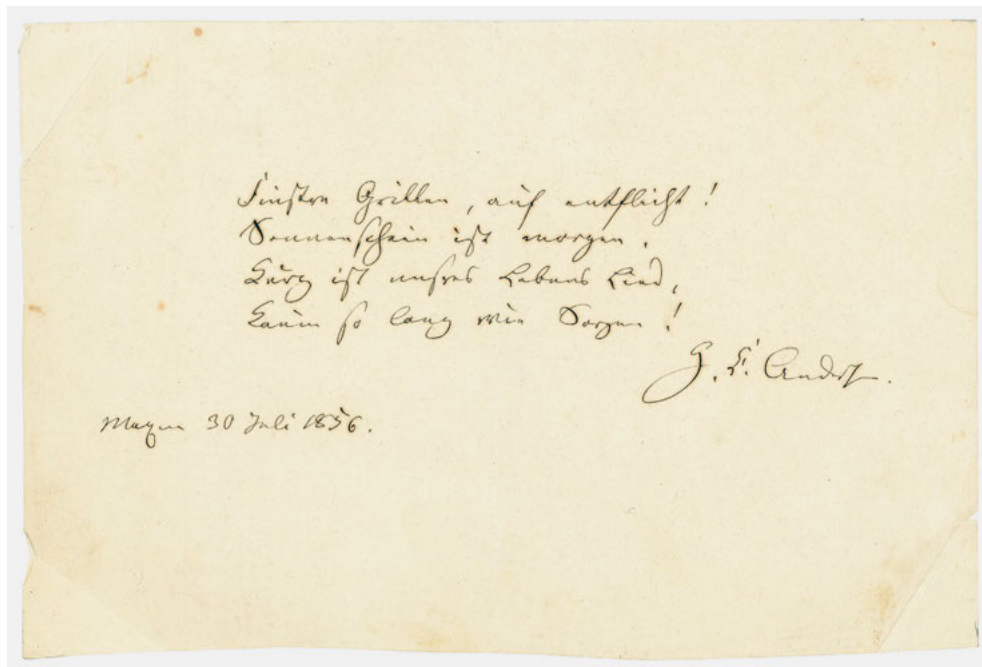 Finstre Grillen, auf entflieht!
Sonnenschein ist morgen,
Kurz ist unsres Lebens Lied,
Kaum so lang wie Sorgen!
H. C. Anders.
Maxen 30 Juli 1856.